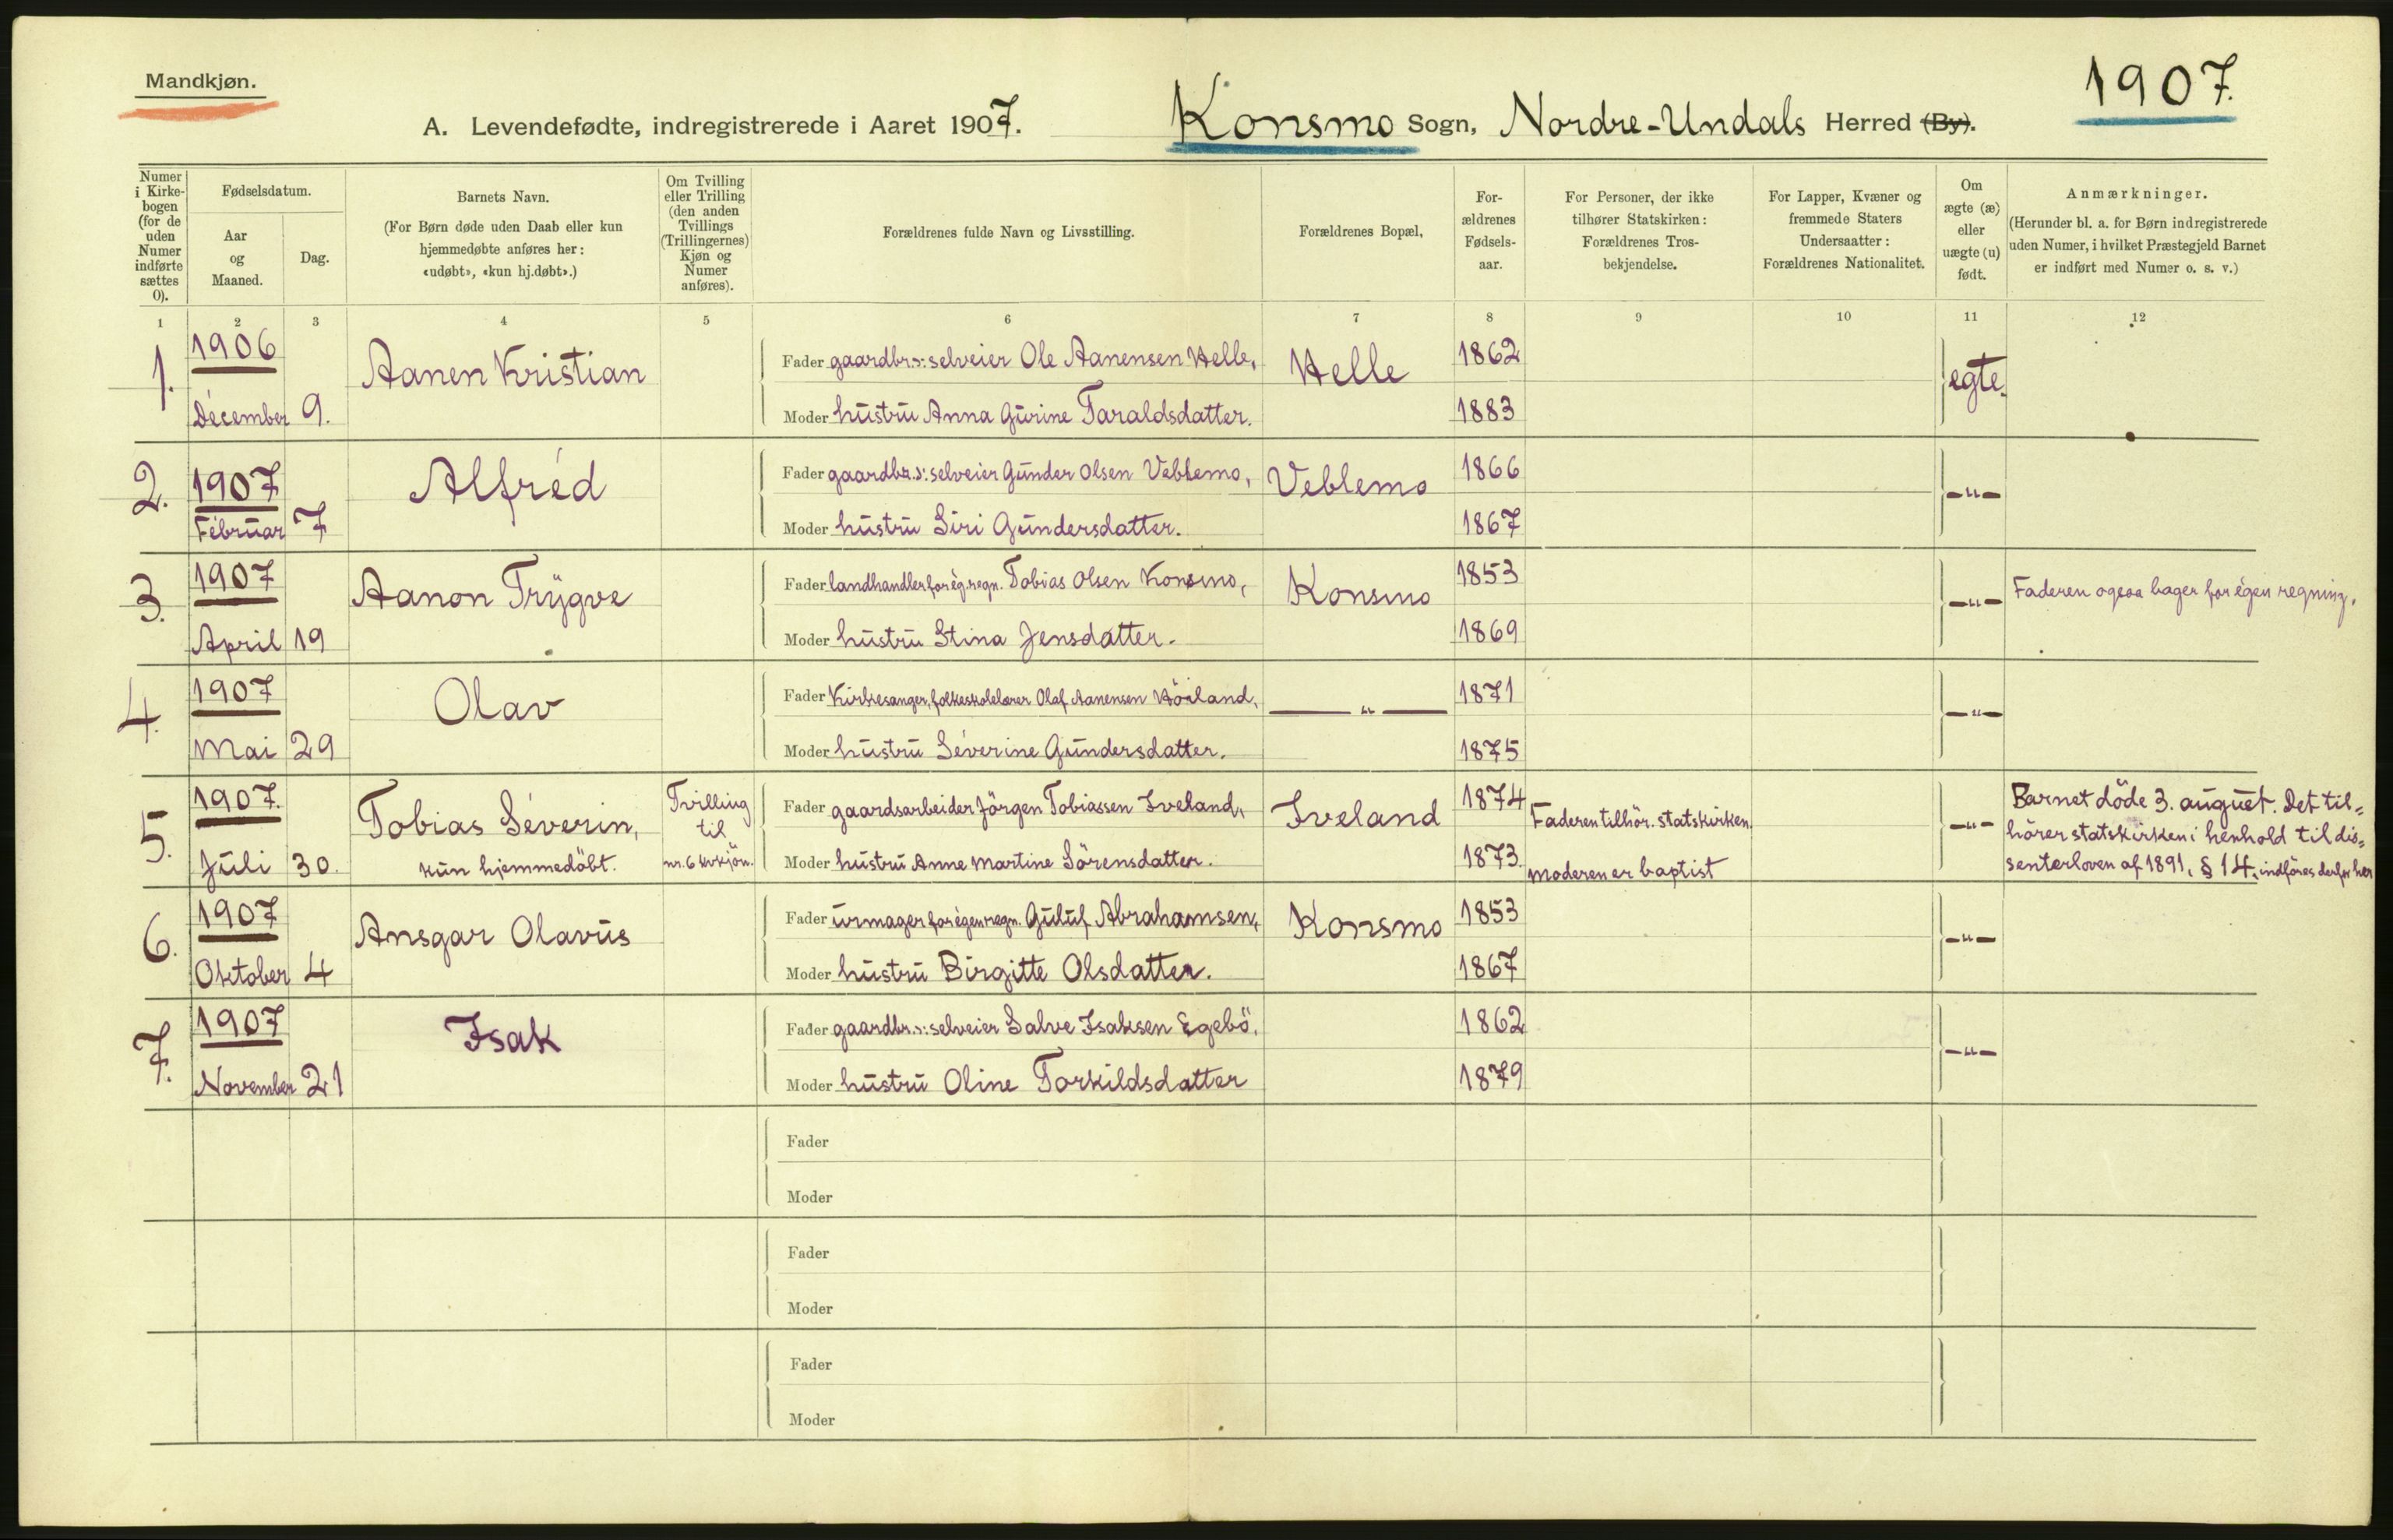 Mandkjøn.
1907.
A. Levendefødte, indregistrerede i Aaret 1907. Konsmo Sogn, Nordre-Undals Herred (By).
Numer i Kirke-bogen (for de uden Numer indførte sættes 0).
Fødselsdatum.
Aar og Maaned.
Dag.
Barnets Navn.
(For Børn døde uden Daab eller kun
hjemmedøbte anføres her:
«udøbt», «kun hj.døbt».)
Om Tvilling
eller Trilling
(den anden
Tvillings
(Trillingernes)
Kjøn og
Numer
anføres).
Forældrenes fulde Navn og Livsstilling.
Forældrenes Bopæl,
For-
ældrenes
Fødsels-
aar.
For Personer, der ikke
tilhører Statskirken:
Forældrenes Tros-
bekjendelse.
For Lapper, Kvæner og
fremmede Staters
Undersaatter:
Forældrenes Nationalitet.
Om
ægte (æ)
eller
uægte (u)
født.
Anmærkninger.
(Herunder bl. a. for Børn indregistrerede
uden Numer, i hvilket Præstegjeld Barnet
er indført med Numer o. s. v.)
1 2 3 4 5 6 7 8 9 10 11 12
1. 1906 December 9. Aanen Kristian
Fader gaardbr. ɔ: selveier Ole Aanensen Helle, Helle 1862 egte.
Moder hustru Anna Gurine Taraldsdatter. 1883
2. 1907 Februar 7 Alfred
Fader gaardbr. ɔ: selveier Gunder Olsen Veblemo, Veblemo 1866 -"-
Moder hustru Siri Gundersdatter. 1867
3. 1907 April 19 Aanon Trygve
Fader landhandler for eg. regn. Tobias Olsen Konsmo, Konsmo 1853 -"- Faderen ogsaa bager for egen regning.
Moder hustru Stina Jensdatter. 1869
4. 1907 Mai 29 Olav
Fader Kirkesanger, folkeskolelærer Olaf Aanensen Höiland, -"- 1871 -"-
Moder hustru Severine Gundersdatter. 1875
5. 1907. Juli 30. Tobias Severin,
kun hjemmedöbt.
Tvilling
til
nr. 6 kvkjön.
Fader gaardsarbeider Jörgen Tobiassen Iveland, Iveland 1874 Faderen tilhör. statskirken -"-
Moder hustru Anne Martine Sörensdatter. 1873. moderen er baptist
Barnet döde 3. august. Det til=
hörer statskirken i henhold til dis=
senterloven af 1891, § 14, indföres derfor her
6. 1907 Oktober 4 Ansgar Olavus
Fader urmager for egen regn. Guluf Abrahamsen, Konsmo 1853 -"-
Moder hustru Birgitte Olsdatter. 1867
7. 1907 November 21 Isak
Fader gaardbr. ɔ: selveier Salve Isaksen Egebö. 1862 -"-
Moder hustru Oline Torkildsdatter 1879
Fader
Moder
Fader
Moder
Fader
Moder